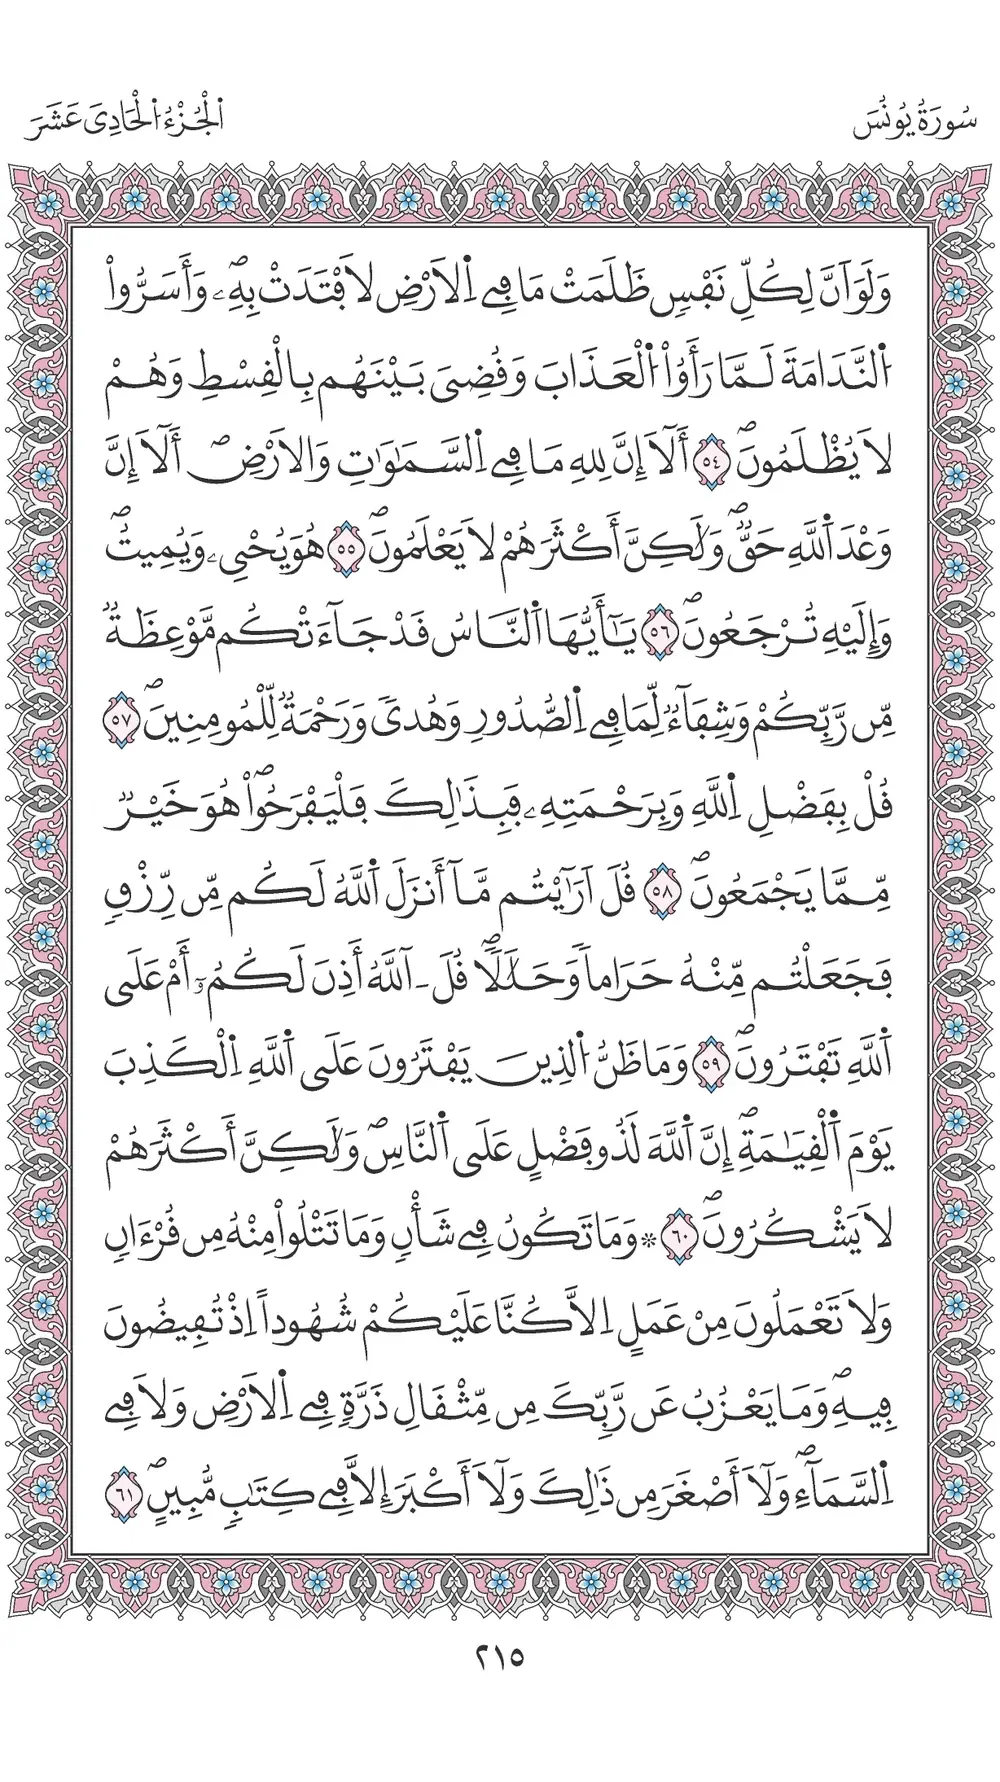 سُورَةُ يُونُسَ
اَ۬لْجُزْءُ اُ۬لْحَادِىَ عَشَرَ
وَلَوَ اَنَّ لِكُلِّ نَفْسٖ ظَلَمَتْ مَا فِے اِ۬لَارْضِ لَافْتَدَتْ بِهِۦۖ وَأَسَرُّواْ
اُ۬لنَّدَامَةَ لَمَّا رَأَوُاْ اُ۬لْعَذَابَ وَقُضِيَ بَيْنَهُم بِالْقِسْطِ وَهُمْ
لَا يُظْلَمُونَۖ ٥٤ أَلَآ إِنَّ لِلهِ مَا فِے اِ۬لسَّمَٰوَٰتِ وَالَارْضِۖ أَلَآ إِنَّ
وَعْدَ اَ۬للَّهِ حَقّٞۖ وَلَٰكِنَّ أَكْثَرَهُمْ لَا يَعْلَمُونَۖ ٥٥ هُوَ يُحْيِۦ وَيُمِيتُۖ
وَإِلَيْهِ تُرْجَعُونَۖ ٥٦ يَٰٓأَيُّهَا اَ۬لنَّاسُ قَدْ جَآءَتْكُم مَّوْعِظَةٞ
مِّن رَّبِّكُمْ وَشِفَآءٞ لِّمَا فِے اِ۬لصُّدُورِ وَهُدىٗ وَرَحْمَةٞ لِّلْمُومِنِينَۖ ٥٧
قُلْ بِفَضْلِ اِ۬للَّهِ وَبِرَحْمَتِهِۦ فَبِذَٰلِكَ فَلْيَفْرَحُواْۖ هُوَ خَيْرٞ
مِّمَّا يَجْمَعُونَۖ ٥٨ قُلَ اَرَٰٓيْتُم مَّآ أَنزَلَ اَ۬للَّهُ لَكُم مِّن رِّزْقٖ
فَجَعَلْتُم مِّنْهُ حَرَاماٗ وَحَلَٰلاٗۖ قُلَ ـ آللَّهُ أَذِنَ لَكُمُۥٓ أَمْ عَلَى
اَ۬للَّهِ تَفْتَرُونَۖ ٥٩ وَمَا ظَنُّ اُ۬لذِينَ يَفْتَرُونَ عَلَى اَ۬للَّهِ اِ۬لْكَذِبَ
يَوْمَ اَ۬لْقِيَٰمَةِۖ إِنَّ اَ۬للَّهَ لَذُو فَضْلٍ عَلَى اَ۬لنَّاسِۖ وَلَٰكِنَّ أَكْثَرَهُمْ
لَا يَشْكُرُونَۖ ٦٠ * وَمَا تَكُونُ فِے شَأْنٖ وَمَا تَتْلُواْ مِنْهُ مِن قُرْءَانٖ
وَلَا تَعْمَلُونَ مِنْ عَمَلٍ اِلَّا كُنَّا عَلَيْكُمْ شُهُوداً اِذْ تُفِيضُونَ
فِيهِۖ وَمَا يَعْزُبُ عَن رَّبِّكَ مِن مِّثْقَالِ ذَرَّةٖ فِے اِ۬لَارْضِ وَلَا فِے
اِ۬لسَّمَآءِۖ وَلَآ أَصْغَرَ مِن ذَٰلِكَ وَلَآ أَكْبَرَ إِلَّا فِے كِتَٰبٖ مُّبِينٍۖ ٦١
٢١٥